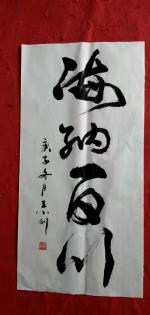 海纳百川
庚子冬月王小刚